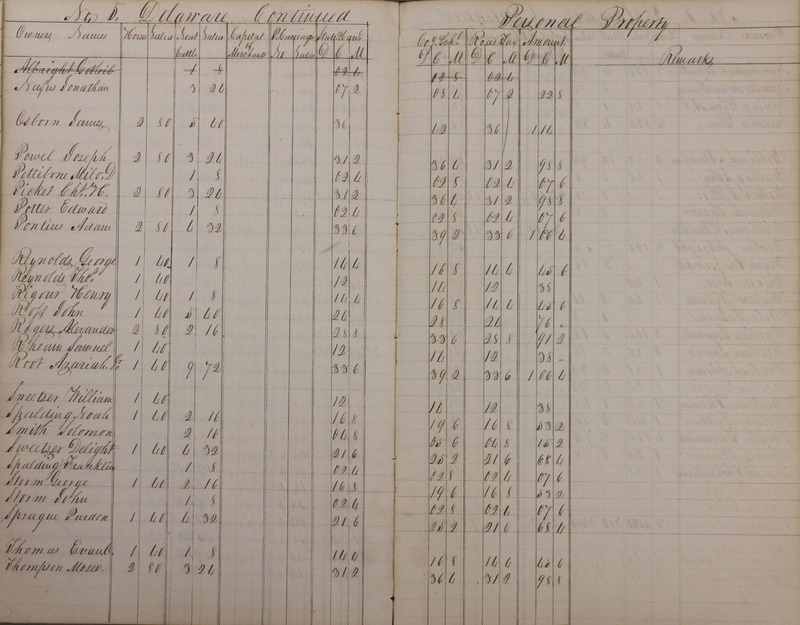 No 5. Delaware Continued Personal Property
Owners Names Horses Value Neat Cattle Value Capital of Merchant P. Carriages No Value State & Canal D C M Coy & Schl D C M Road Tax D C M Amount D C M Remarks
Albright Gotlib 1 8 02 4 02 8 02 4
Nafus Jonathan 3 24 07 2 08 4 07 2 22 8
Osborn James 2 80 5 40 36 42 36 1 14
Powel Joseph 2 80 3 24 31 2 36 4 31 2 98 8
Pettibone Milo D 1 8 02 4 02 8 02 4 07 6
Picket Chs. H. 2 80 3 24 31 2 36 4 31 2 98 8
Potter Edward 1 8 02 4 02 8 02 4 07 6
Pontius Adam 2 80 4 32 33 6 39 2 33 6 1 06 4
Reynolds George 1 40 1 8 14 4 16 8 14 4 45 6
Reynolds Thos 1 40 12 14 12 38
Rigour Henry 1 40 1 8 14 4 16 8 14 4 45 6
Ross John 1 40 5 40 24 28 24 76 -
Rogers Alexander 2 80 2 16 28 8 33 6 28 8 91 2
Rheam Samuel 1 40 12 14 12 38 -
Root Azariah Jr 1 40 9 72 33 6 39 2 33 6 1 06 4
Sweetser William 1 40 12 14 12 38
Spalding Noah 1 40 2 16 16 8 19 6 16 8 53 2
Smith Solomon 2 16 04 8 05 6 04 8 15 2
Sweetser Delight 1 40 4 32 21 6 25 2 21 6 68 4
Spalding Franklin 1 8 02 4 02 8 02 4 07 6
Storm George 1 40 2 16 16 8 19 6 16 8 53 2
Storm John 1 8 02 4 02 8 02 4 07 6
Sprague Pardon 1 40 4 32 21 6 25 2 21 6 68 4
Thomas Evan 1 40 1 8 14 4 16 8 14 4 45 6
Thompson Moses. 2 80 3 24 31 2 36 4 31 2 98 8